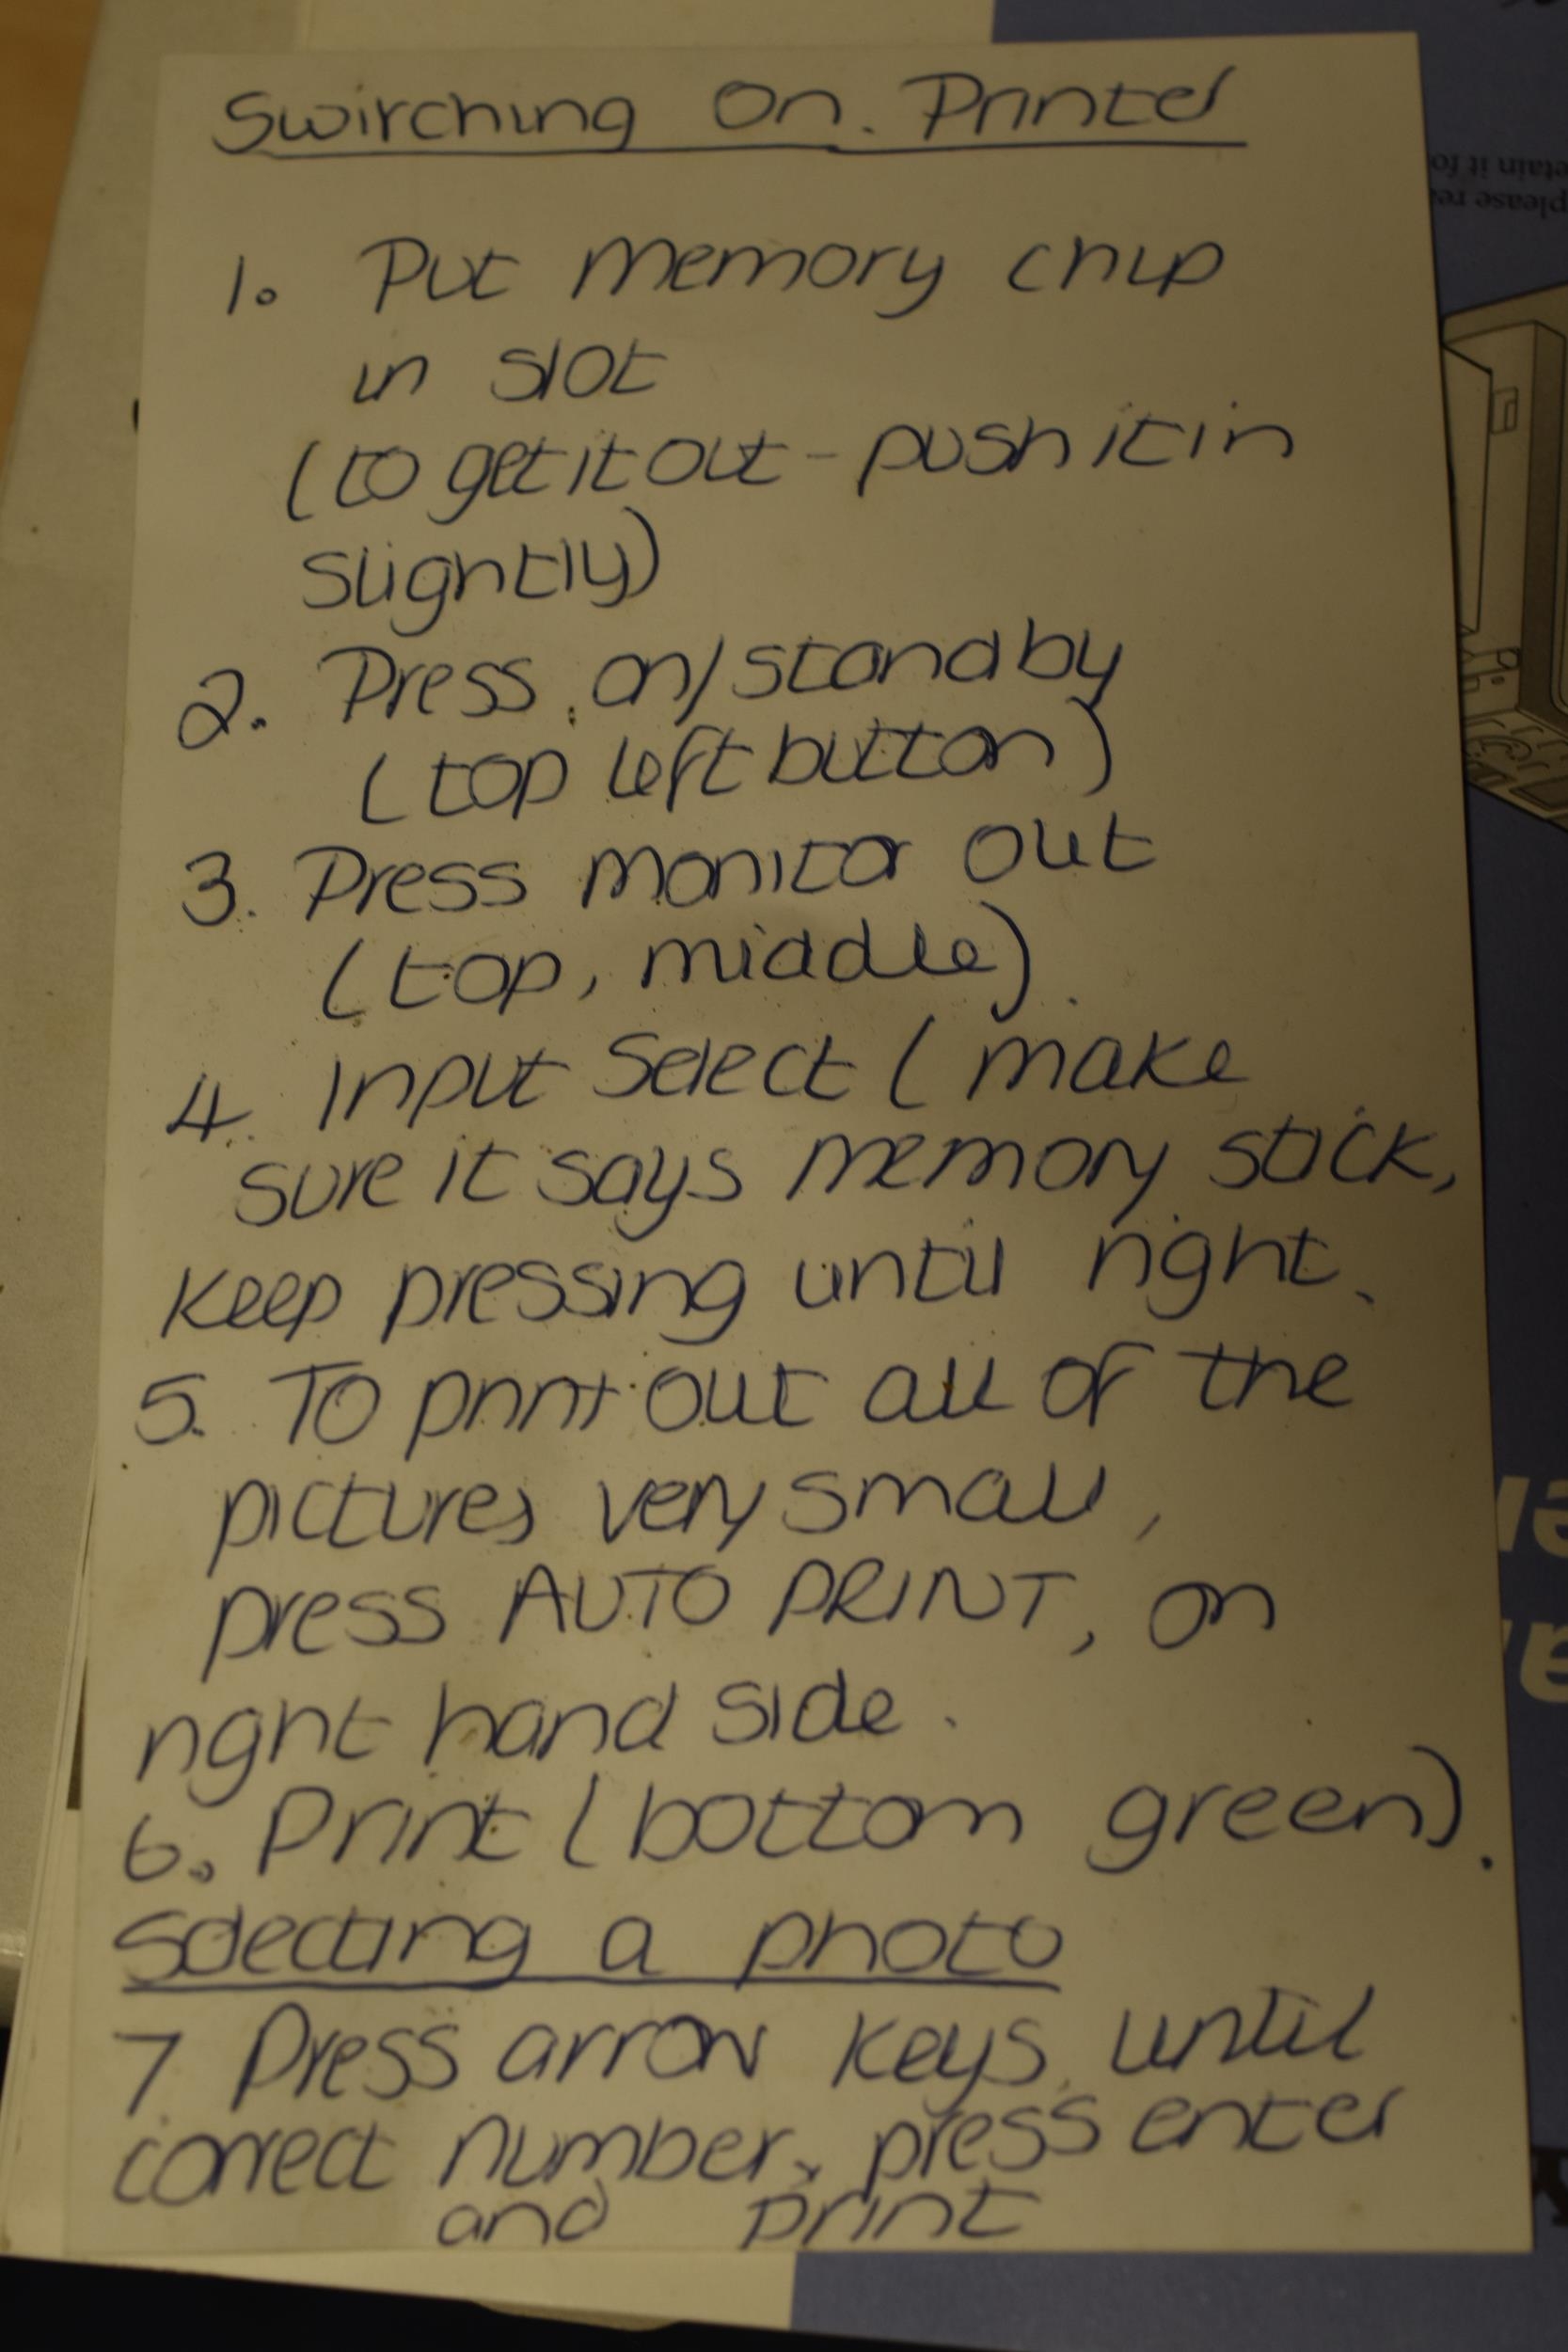 Switching On. Printer
1. Put memory chip
in slot
(to get it out - push it in
slightly)
2. Press on/standby
(top left button)
3. Press monitor out
(top, middle).
4. Input Select (make
sure it says memory stick,
keep pressing until right.
5. To print out all of the
pictures very small,
press AUTO PRINT, on
right hand side.
6. Print (bottom green).
Selecting a photo
7 Press arrow keys until
correct number, press enter
and print
etain it fo
please re